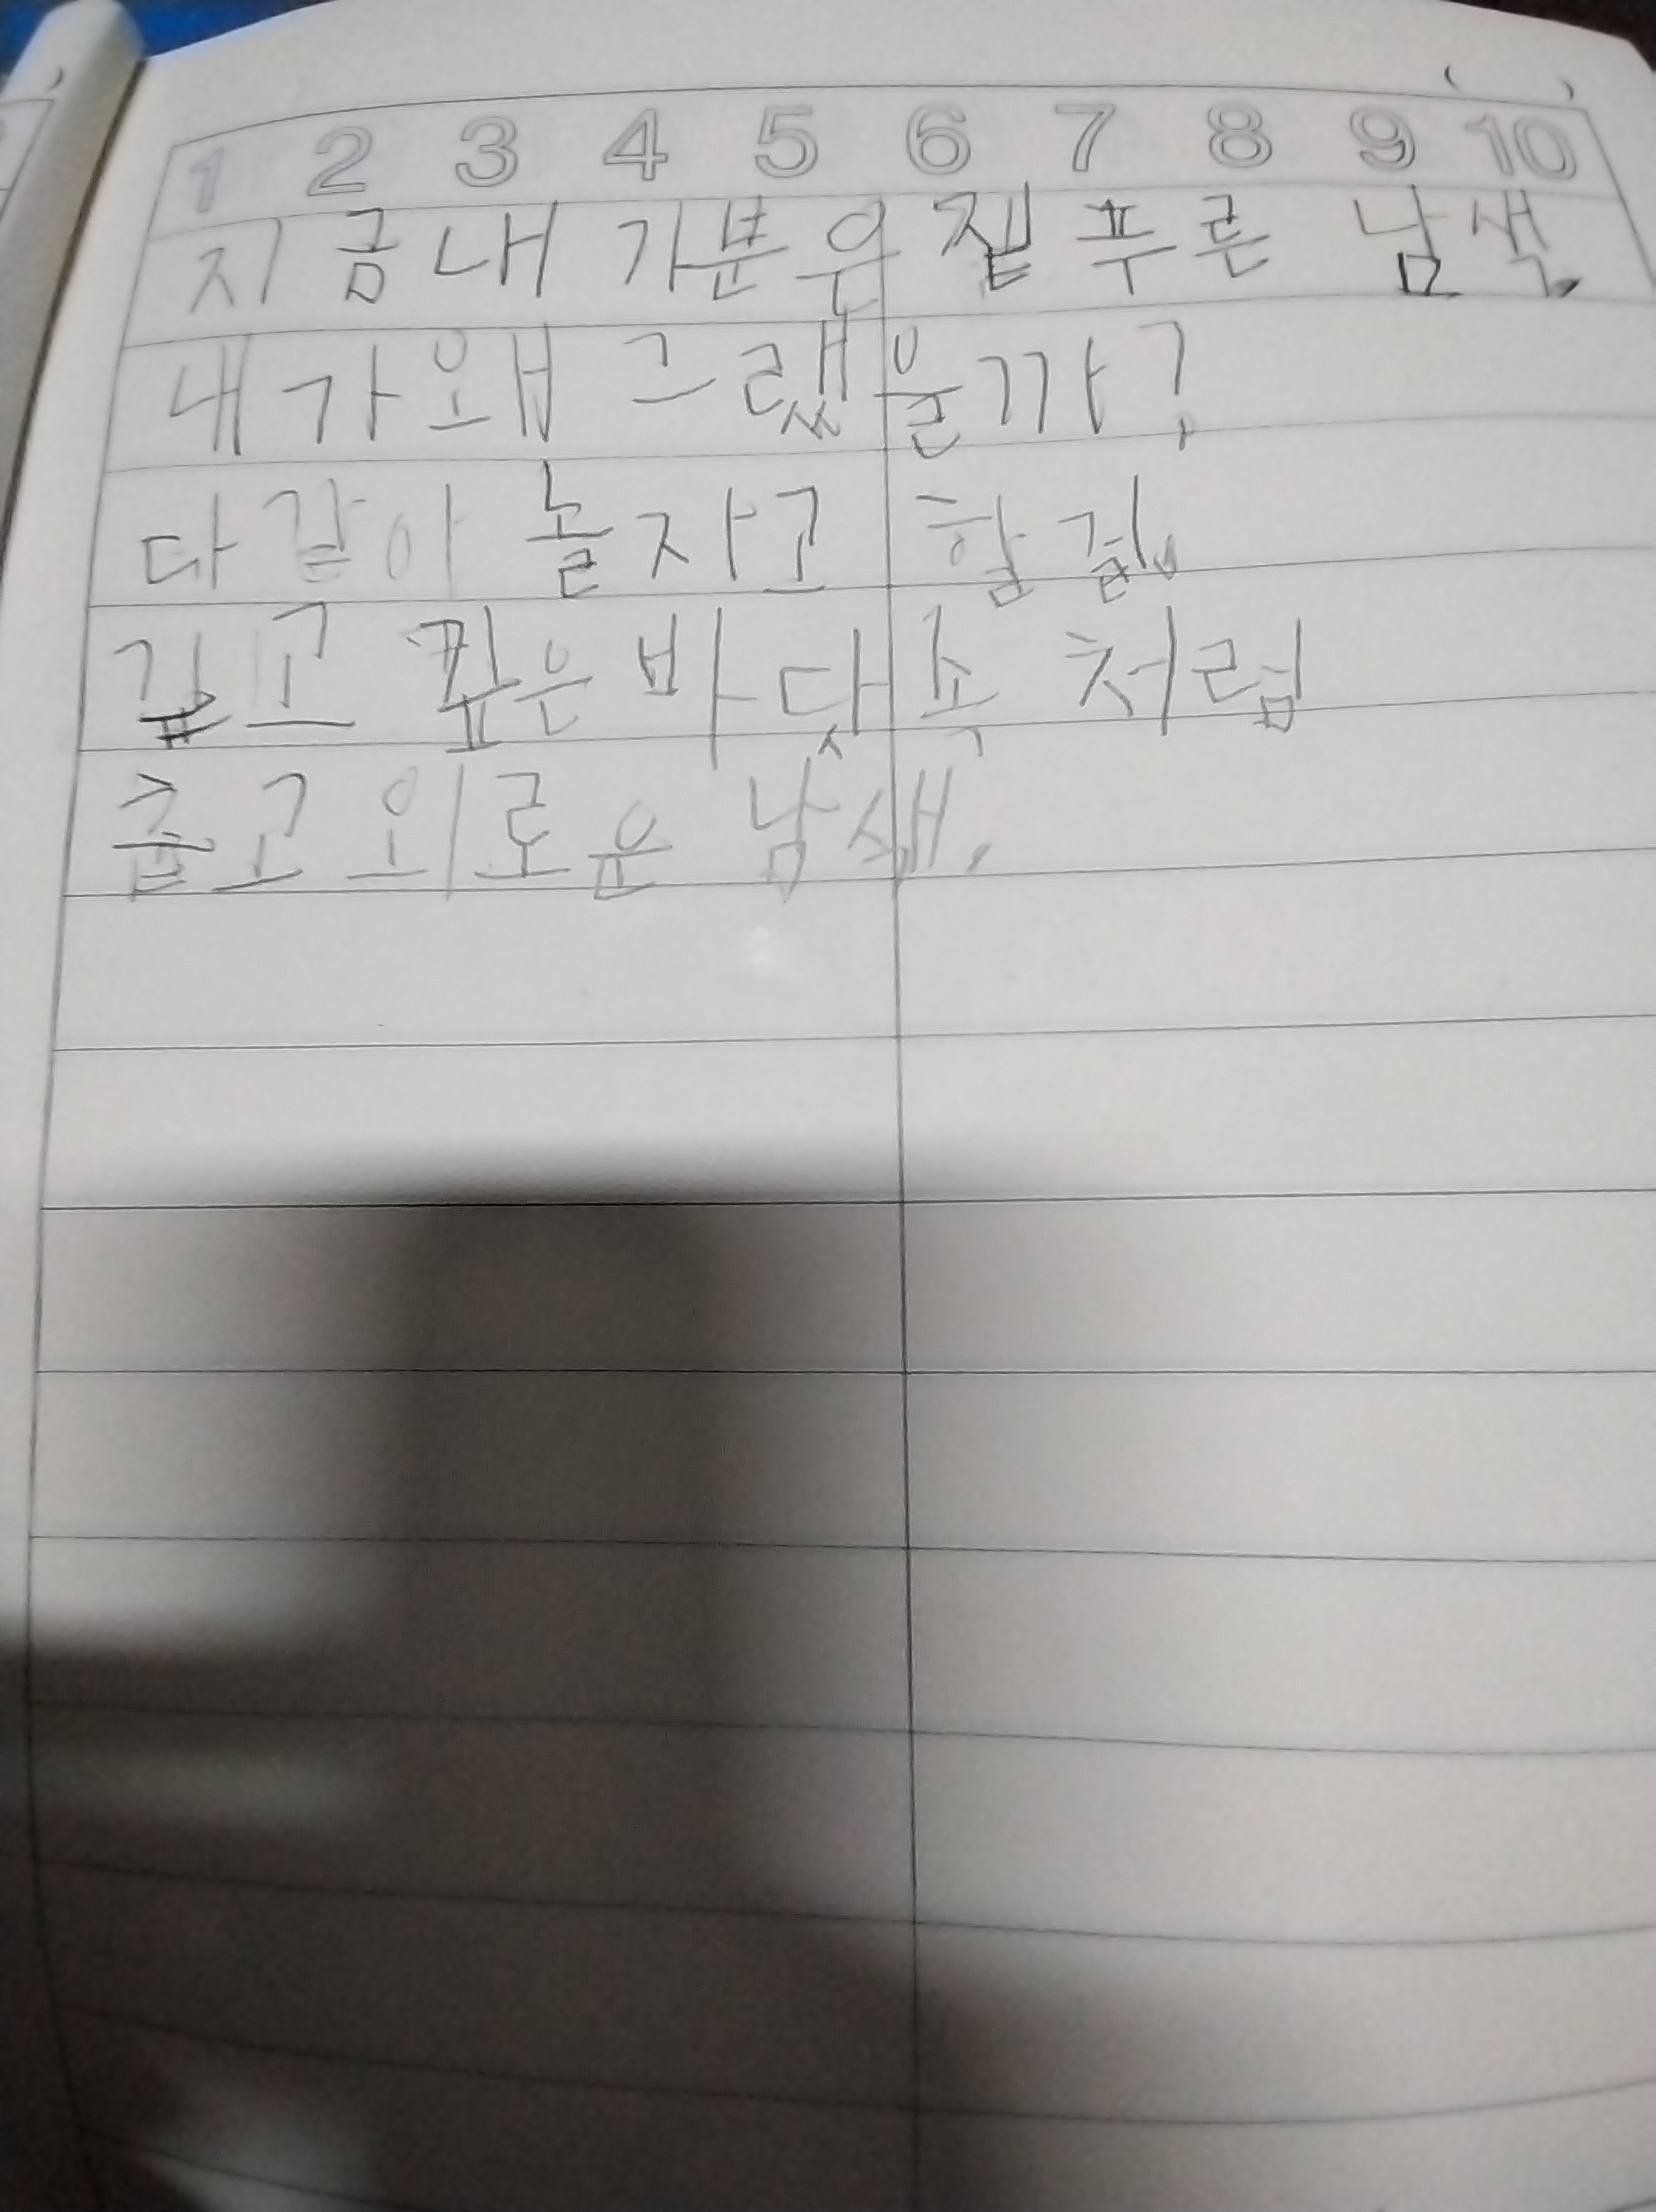 1 2 3 4 5 6 7 8 9 10
지금 내 가분은 짙푸른 남색.
내가 왜 그랬을까?
다 같이 놀자고 할 걸.
깊고 깊은 바닷속처럼
춥고 외로운 남색.